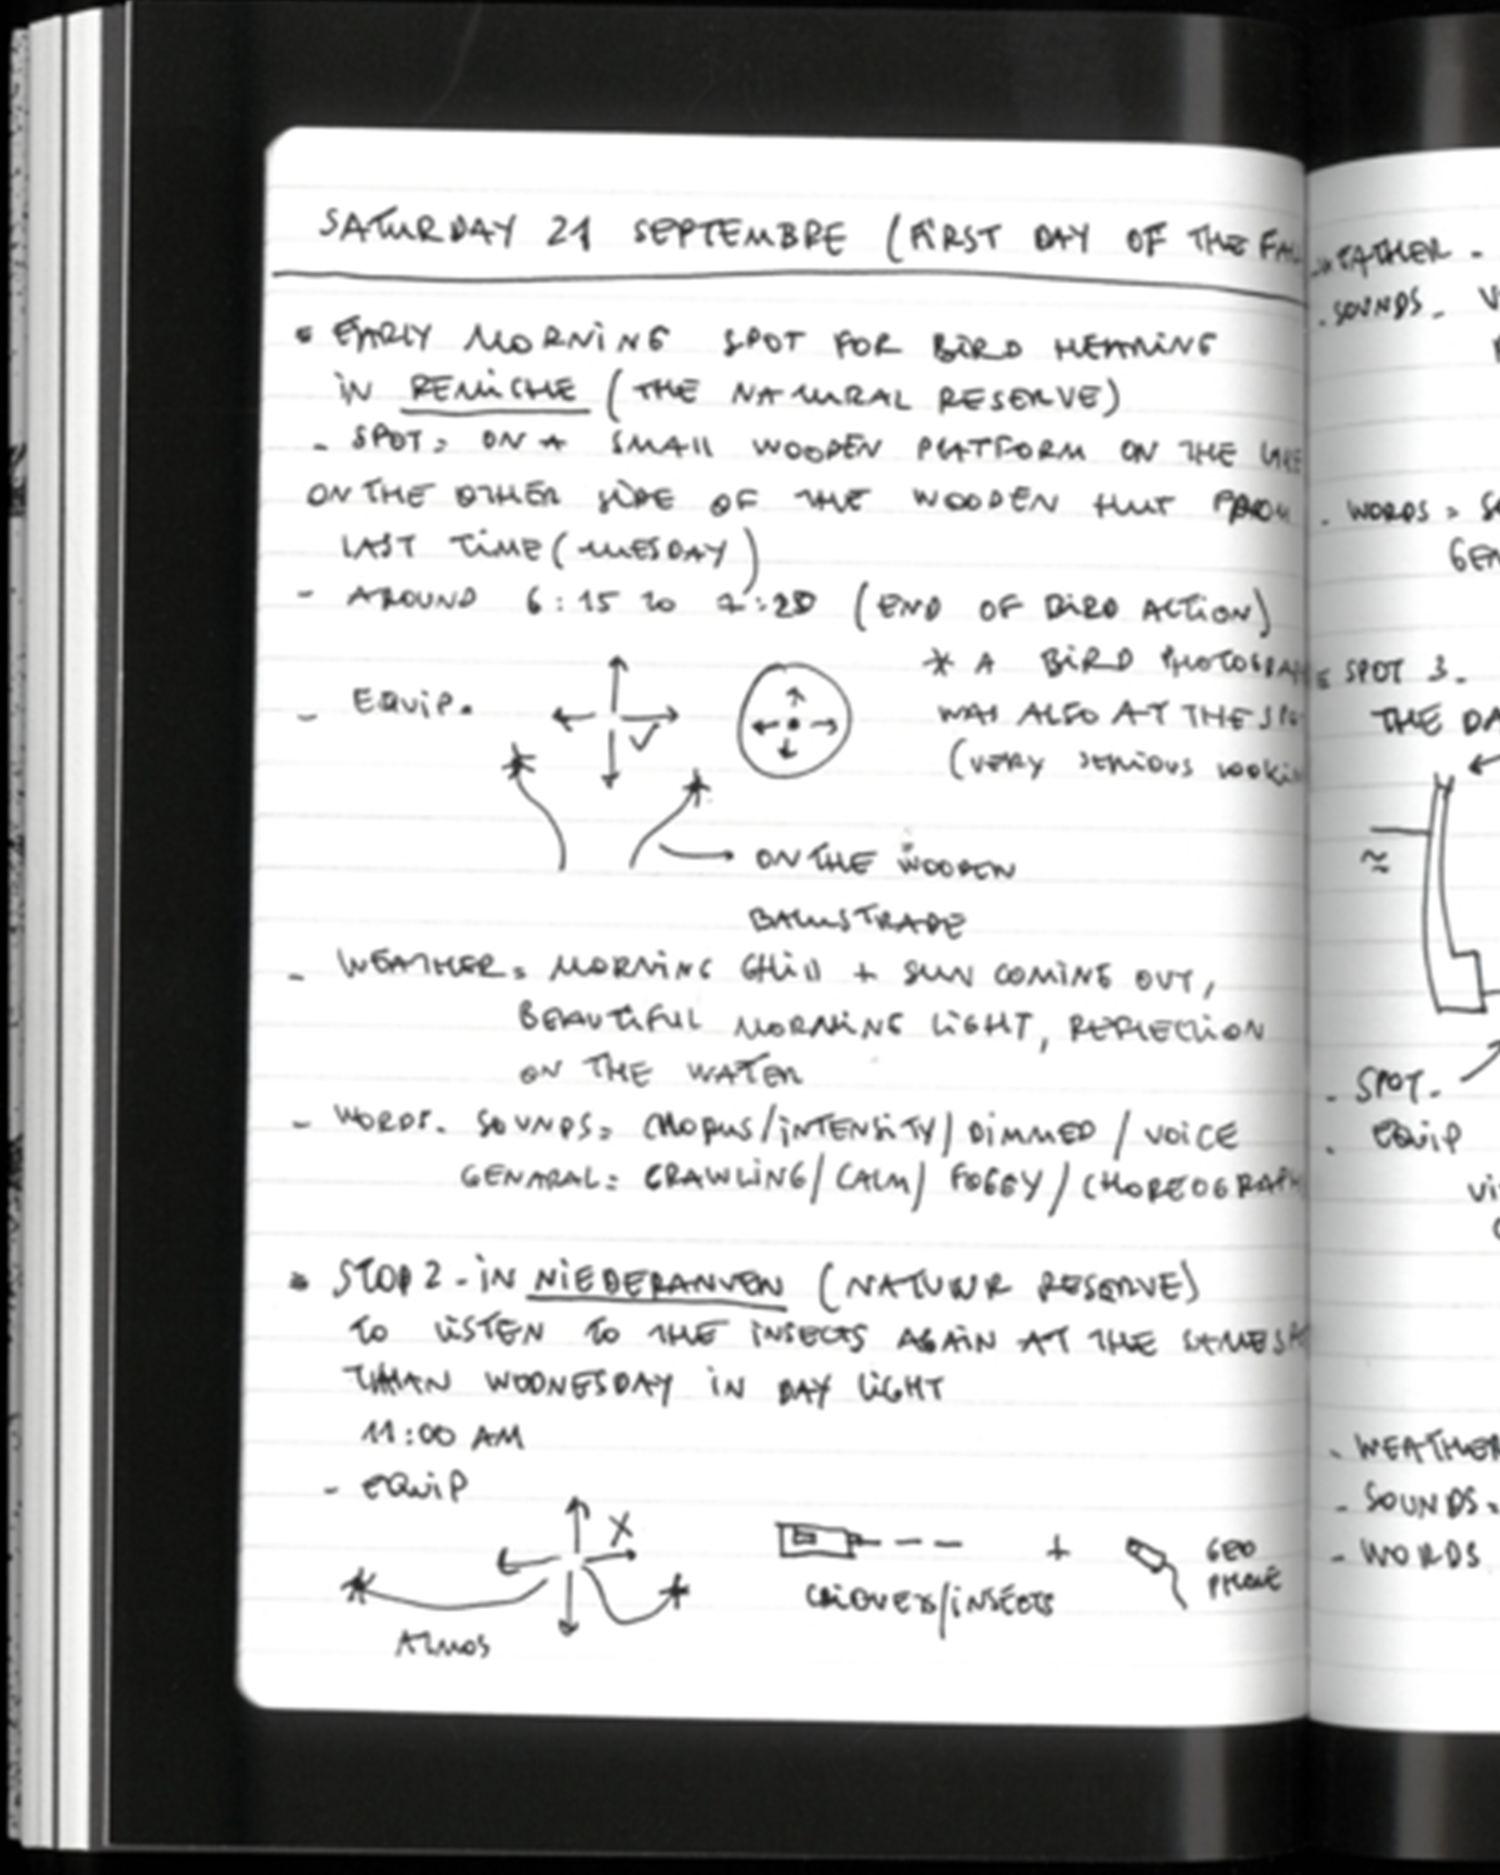 SATURDAY 21 SEPTEMBRE (FIRST DAY OF THE
EARLY MORNING SPOT FOR BIRD HEARING
IN REMICHE (THE NATURAL RESERVE)
- SPOT = ON A SMALL WOODEN PLATFORM ON THE
ON THE OTHER SIDE OF THE WOODEN HUT FROM
LAST TIME (TUESDAY)
- AROUND 6:15 to 7:20 (END OF BIRD ACTION)
* A BIRD
- EQUIP.
WAS ALSO AT THE
(VERY SERIOUS
→ ON THE WOODEN
BALUSTRADE
- WEATHER = MORNING CHILL + SUN COMING OUT,
BEAUTIFUL MORNING LIGHT, REFLECTION
ON THE WATER
- WORDS. SOUNDS = CHORUS/INTENSITY/DIMMED/VOICE
GENARAL = CRAWLING/CALM/FOGGY/
STOP 2 - IN NIEDERANVEN (RESERVE)
TO LISTEN TO THE INSECTS AGAIN AT THE SAME
THAN WEDNESDAY IN DAY LIGHT
11:00 AM
- EQUIP
X
+ GEO
PHONE
/INSECTS
ATMOS
SOUNDS -
WORDS =
SPOT 3 -
THE
SPOT -
EQUIP
WEATHER
- SOUNDS =
- WORDS